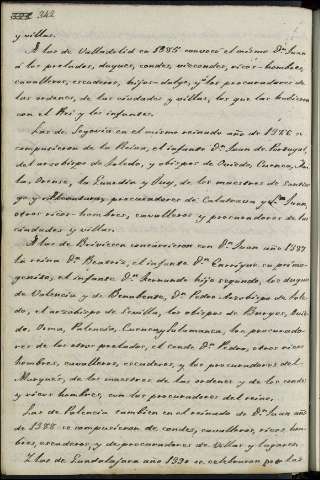 342
y villas.
A las de Valladolid en 1385 convocó el mismo Dn. Juan
á los prelados, duques, condes, viscondes, ricos-hombres,
cavalleros, escuderos, hijos-dalgo, y á los procuradores de
las ordenes, de las ciudades y villas, los que las hicieron
con el Rei y los infantes.
Las de Segovia en el mismo reinado año de 1386 se
compusieron de la Reina, el infante Dn. Juan de Portugal,
del arzobispo de Toledo, y obispos de Oviedo, Cuenca,
Orense, la Guardia y Tuy, de los maestres de Santia-
go y Alcantara, procuradores de Calatrava y Sn. Juan,
otros ricos-hombres, cavalleros y procuradores de las
ciudades y villas.
A las de Briviesca concurrieron con Dn. Juan año 1387
la reina Da. Beatriz, el infante Dn. Enrrique su primo-
genito, el infante Dn. Fernando hijo segundo, los duques
de Valencia y de Benabente, Dn. Pedro Arzobispo de Tole-
do, el arzobispo de Sevilla, los obispos de Burgos, Ovie-
do, Osma, Palencia, Cuenca y Salamanca, los procurado-
res de los otros prelados, el conde Dn. Pedro, otros ricos
hombres, cavalleros, escuderos, y los procuradores del
Marqués, de los maestres de las ordenes y de los condes
y ricos hombres, con los procuradores del reino.
Las de Palencia tambien en el reinado de Dn. Juan año
de 1388 se compusieron de condes, cavalleros, ricos hom-
bres, escuderos y de procuradores de villas y lugares.
Y las de Guadalajara año 1390 se celebraron por los